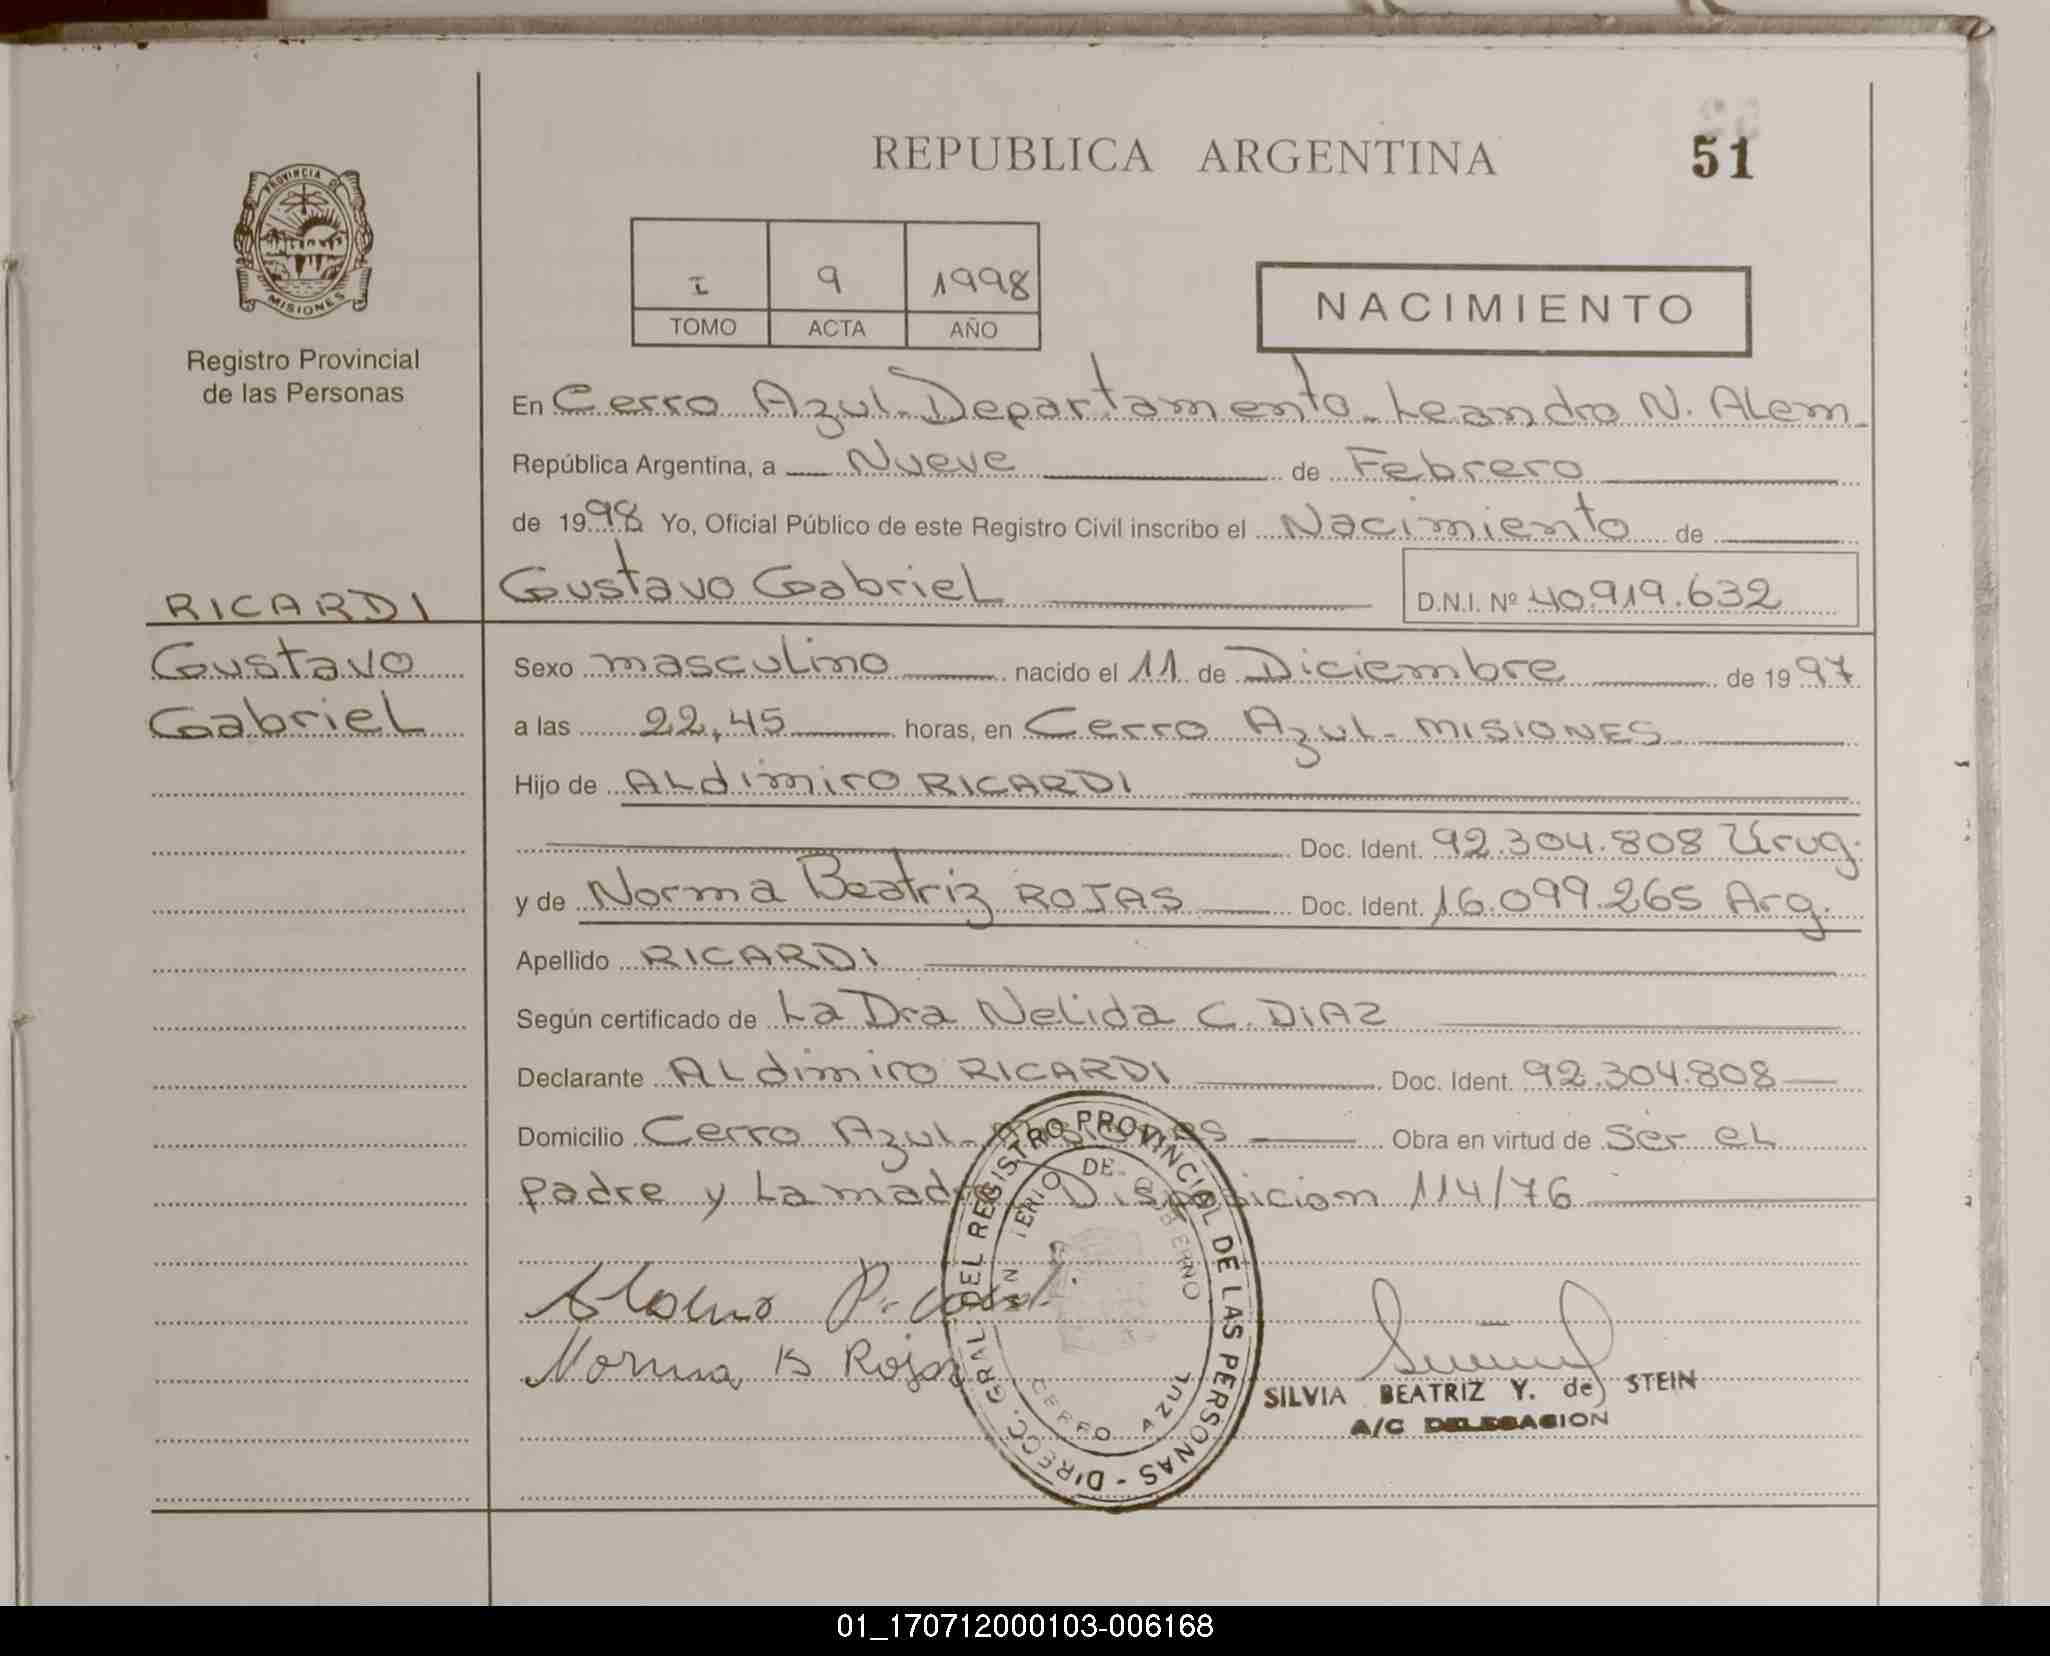 REPUBLICA ARGENTINA
51
PROVINCIA DE
MISIONES
Registro Provincial
de las Personas
I 9 1998
TOMO ACTA AÑO
NACIMIENTO
En Cerro Azul-Departamento-Leandro N. ALem-
República Argentina, a Nueve de Febrero
de 1998 Yo, Oficial Público de este Registro Civil inscribo el Nacimiento de
Gustavo Gabriel D.N.I. Nº 40.919.632
RICARDI
Gustavo
Gabriel
Sexo masculino nacido el 11 de Diciembre de 1997
a las 22,45 horas, en Cerro Azul-MISIONES
Hijo de ALdimiro RICARDI
Doc. Ident. 92.304.808 Urug.
y de Norma Beatriz ROJAS Doc. Ident. 16.099.265 Arg.
Apellido RICARDI
Según certificado de La Dra Nelida C. DIAZ
Declarante ALdimiro RICARDI Doc. Ident. 92.304.808
Domicilio Cerro Azul-Misiones Obra en virtud de ser eL
padre y La madre Disposicion 114/76
Norma B Rojas
DIRECC. GRAL. DEL REGISTRO PROVINCIAL DE LAS PERSONAS -
MINISTERIO DE GOBIERNO
CERRO AZUL
SILVIA BEATRIZ Y. de STEIN
A/C DELEGACION
01_170712000103-006168